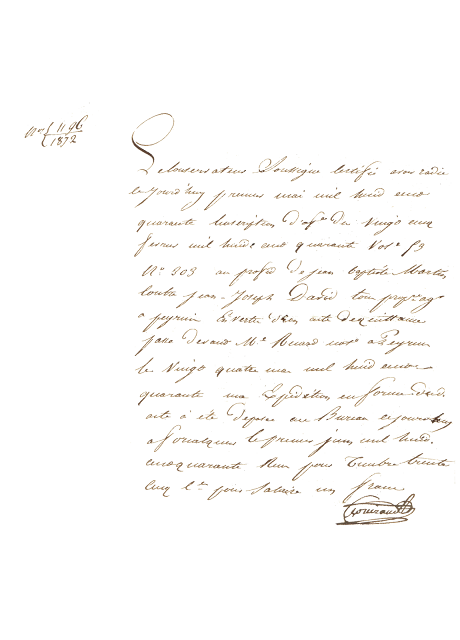 Nos 1196
1872
Le Conservateur Soussigné Certifie avoir radié
le jourd'huy premier mai mil huit cent
quarante Inscription d'of.ce du Vingt cinq
fevrier mil huit cent quarante Vol.e 53
N.o 203 au profit de jean baptiste Martin
Contre jean Joseph David tous
a peynier En vertu d'un acte de quittance
passé devant M.e Renard not.e a Peynier
le Vingt quatre mai mil huit cent
quarante une Expédition en forme dud.
acte a été déposé au Bureau
a le premier juin mil huit
cent quarante Reçu pour Timbre trente
Cinq c.es pour Salaire un franc